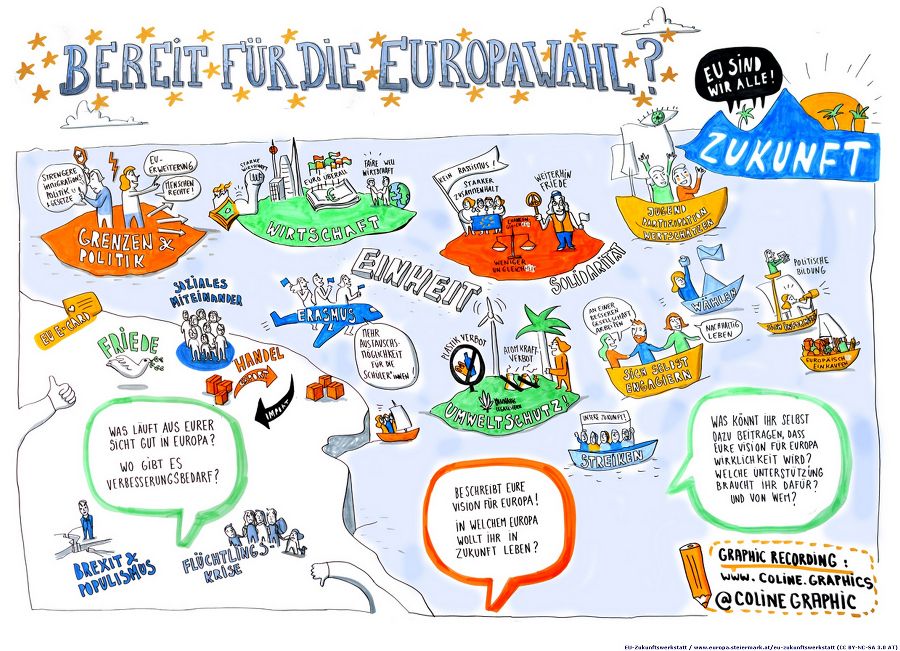 BEREIT FÜR DIE EUROPAWAHL?
EU SIND
WIR ALLE!
ZUKUNFT
STRENGERE
IMMIGRATIONS
POLITIK &
GESETZE
EU-
ERWEITERUNG
MENSCHEN
RECHTE!
GRENZEN &
POLITIK
STARKE
WIRTSCHAFT
EURO ÜBERALL
FAIRE WELT
WIRTSCHAFT
WIRTSCHAFT
KEIN RASSISMUS!
STARKER
ZUSAMMENHALT
WEITERHIN
FRIEDE
WENIGER
UNGLEICH
JUGEND
PARTIZIPATION
WERTSCHÄTZEN
EINHEIT
SOLIDARITÄT
EU E-CARD
SOZIALES
MITEINANDER
ERASMUS
MEHR
AUSTAUSCHS-
MÖGLICHKEIT
FÜR DIE
SCHÜLER*INNEN
FRIEDE
HANDEL
EXPORT
IMPORT
PLASTIK VERBOT
ATOMKRAFT-
VERBOT
UMWELTSCHUTZ!
AN EINER
BESSEREN
GESELLSCHAFT
ARBEITEN
NACHHALTIG
LEBEN
SICH SELBST
ENGAGIERN
WÄHLEN
POLITISCHE
BILDUNG
EUROPÄISCH
EINKAUFEN
UNSERE ZUKUNFT!
STREIKEN
WAS LÄUFT AUS EURER
SICHT GUT IN EUROPA?
WO GIBT ES
VERBESSERUNGSBEDARF?
BESCHREIBT EURE
VISION FÜR EUROPA!
IN WELCHEM EUROPA
WOLLT IHR IN
ZUKUNFT LEBEN?
WAS KÖNNT IHR SELBST
DAZU BEITRAGEN, DASS
EURE VISION FÜR EUROPA
WIRKLICHKEIT WIRD?
WELCHE UNTERSTÜTZUNG
BRAUCHT IHR DAFÜR?
UND VON WEM?
BREXIT &
POPULISMUS
FLÜCHTLINGS-
KRISE
GRAPHIC RECORDING:
WWW.COLINE.GRAPHICS
@COLINEGRAPHIC
EU-Zukunftswerkstatt / www.europa.steiermark.at/eu-zukunftswerkstatt (CC BY-NC-SA 3.0 AT)